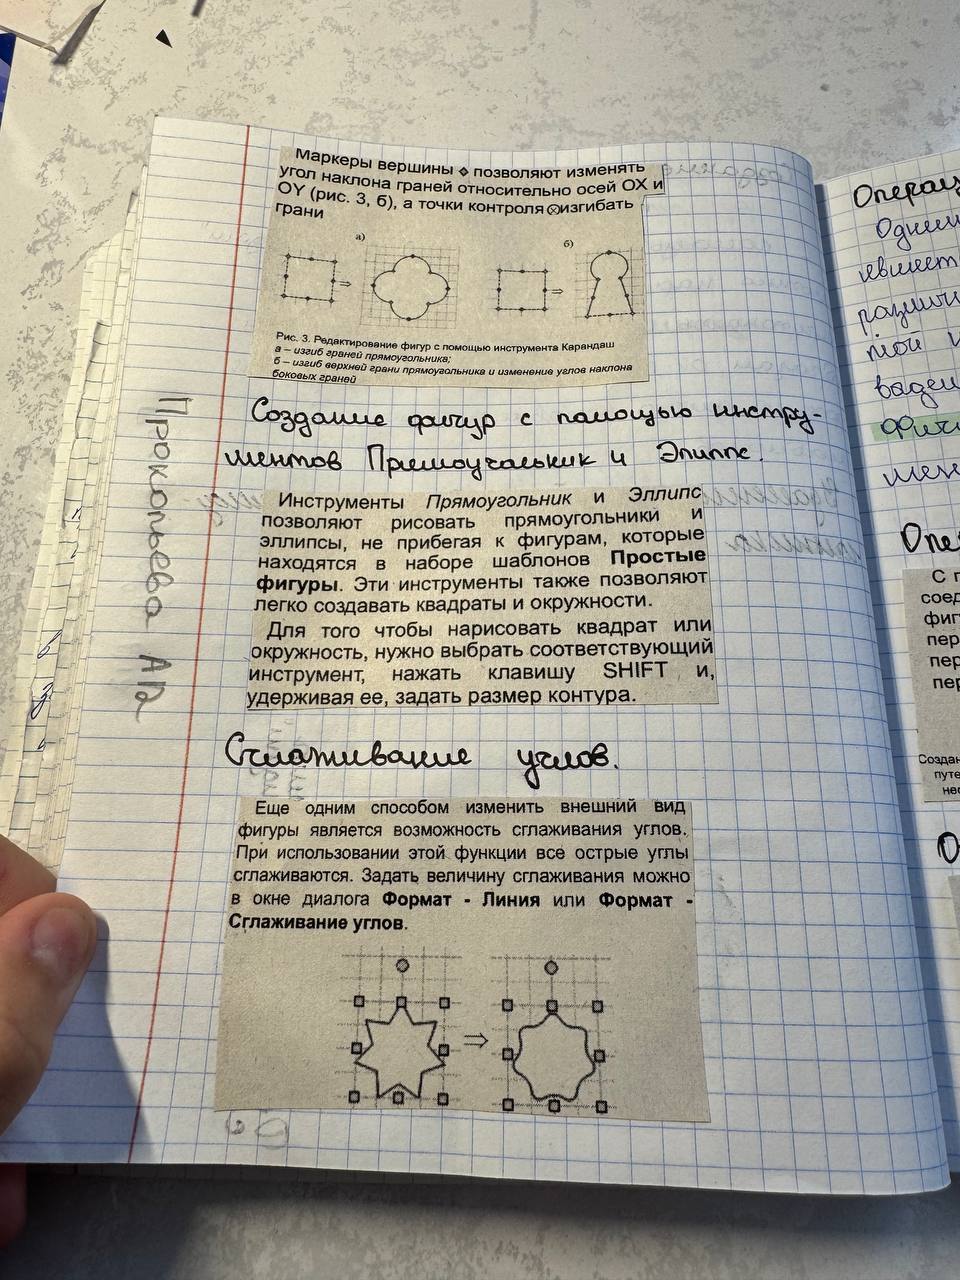 Маркеры вершины позволяют изменять
угол наклона граней относительно осей OX и
OY (рис. 3, б), а точки контроля изгибать
грани
а)
б)
Рис. 3. Редактирование фигур с помощью инструмента Карандаш
а – изгиб граней прямоугольника;
б – изгиб верхней грани прямоугольника и изменение углов наклона
боковых граней
Создание фигур с помощью инстру-
ментов Прямоугольник и Эллипс.
Инструменты Прямоугольник и Эллипс
позволяют рисовать прямоугольники и
эллипсы, не прибегая к фигурам, которые
находятся в наборе шаблонов Простые
фигуры. Эти инструменты также позволяют
легко создавать квадраты и окружности.
Для того чтобы нарисовать квадрат или
окружность, нужно выбрать соответствующий
инструмент, нажать клавишу SHIFT и,
удерживая ее, задать размер контура.
Сглаживание углов.
Еще одним способом изменить внешний вид
фигуры является возможность сглаживания углов.
При использовании этой функции все острые углы
сглаживаются. Задать величину сглаживания можно
в окне диалога Формат - Линия или Формат -
Сглаживание углов.
Прокопьева А12
Операц
Одним
являет
различ
той и
ваден
фигу
мен
Опе
С п
соед
фиг
пер
пер
пер
Создан
путе
нес
О